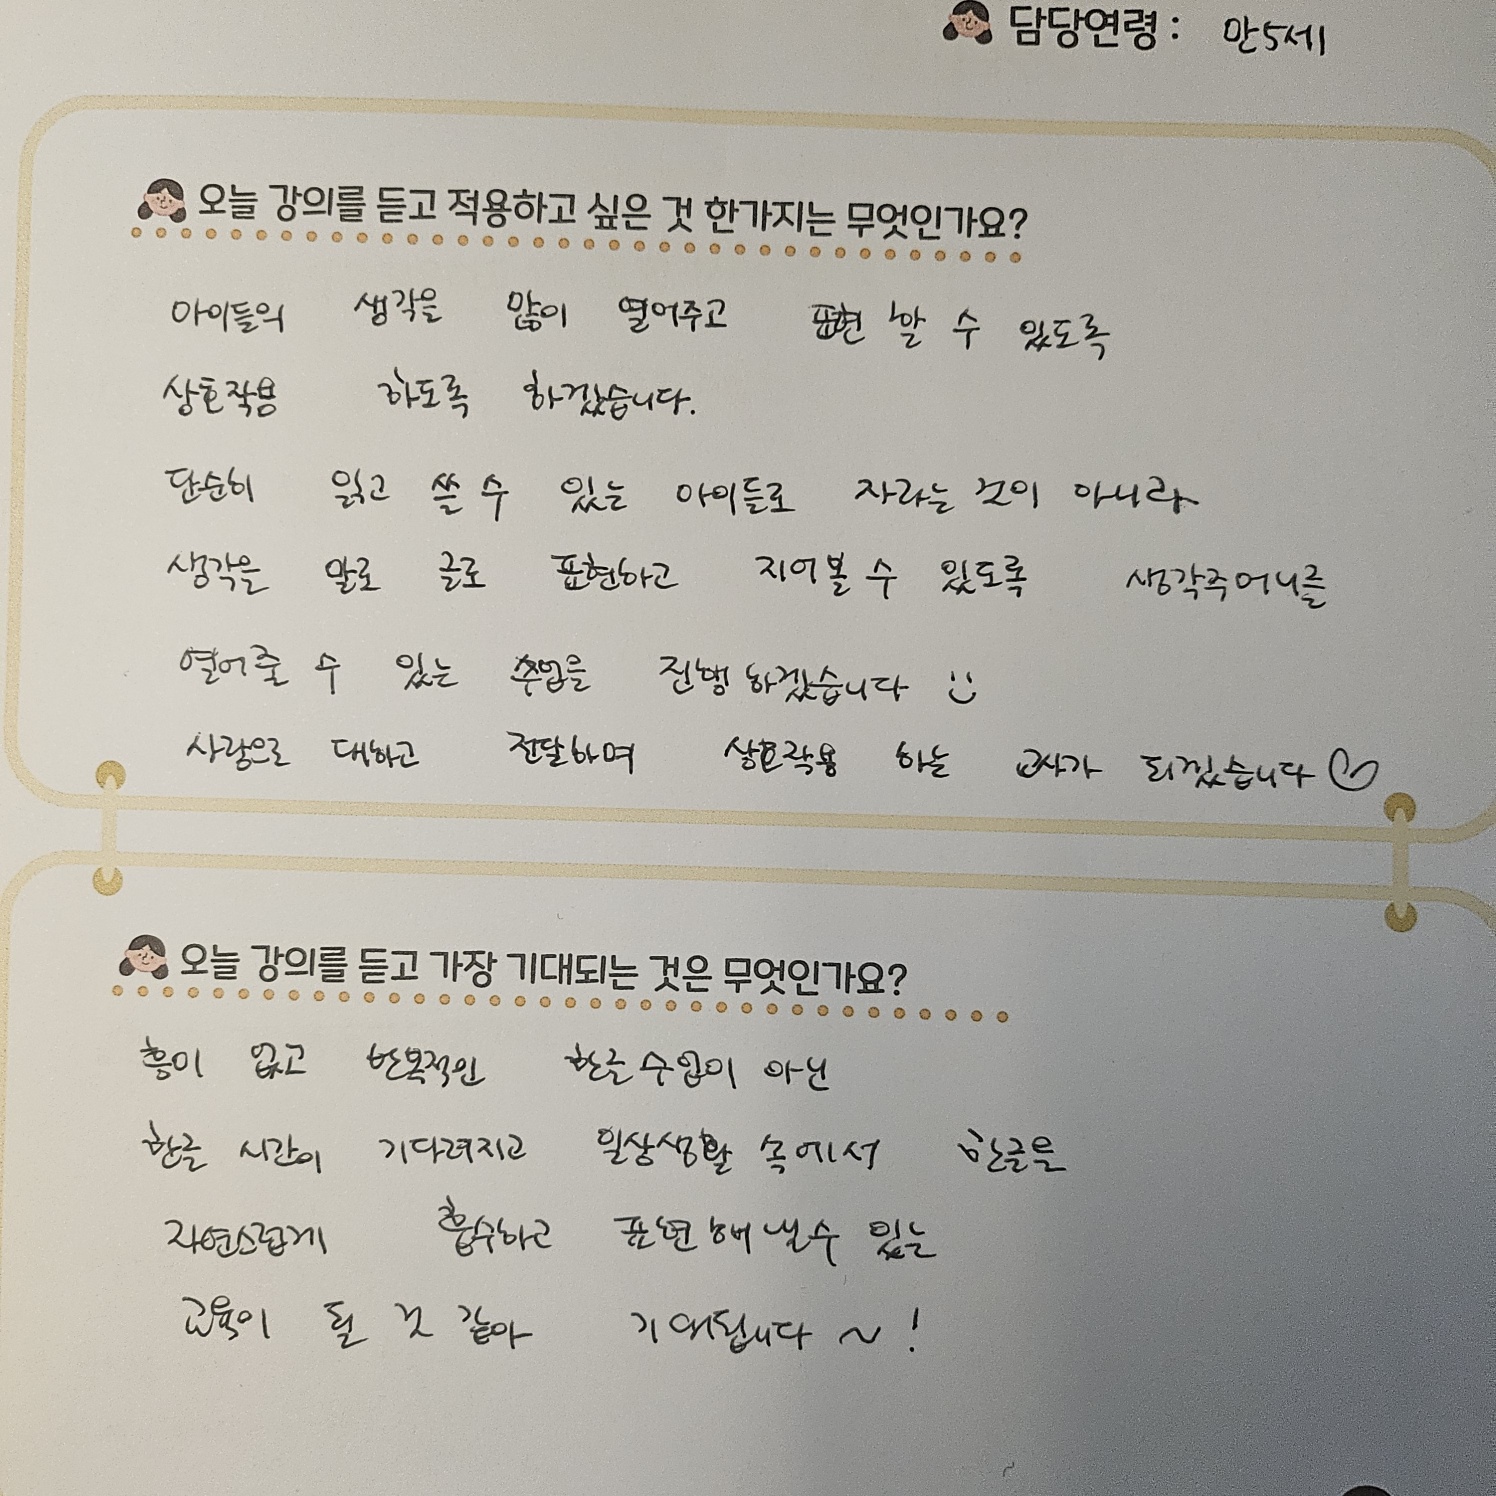 담당연령 : 만5세
오늘 강의를 듣고 적용하고 싶은 것 한가지는 무엇인가요?
아이들의 생각을 많이 열어주고 표현 할 수 있도록
상호작용 하도록 하겠습니다.
단순히 읽고 쓸 수 있는 아이들로 자라는 것이 아니라
생각을 말로 글로 표현하고 지어볼 수 있도록 생각주머니를
열어줄 수 있는 수업을 진행하겠습니다
사랑으로 대하고 전달하며 상호작용 하는 교사가 되겠습니다
오늘 강의를 듣고 가장 기대되는 것은 무엇인가요?
흥이 없고 반복적인 한글수업이 아닌
한글 시간이 기다려지고 일상생활 속에서 한글을
자연스럽게 흡수하고 표현해 낼 수 있는
교육이 될 것 같아 기대됩니다 ~ !